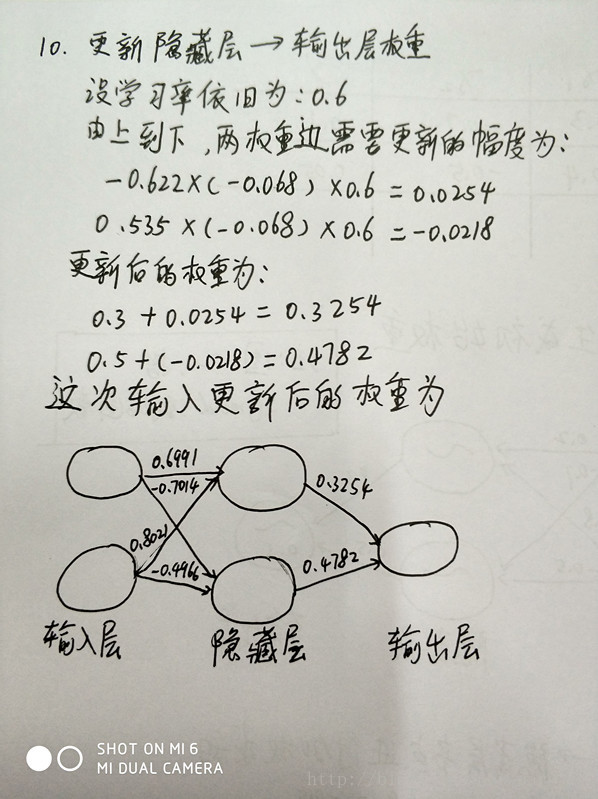 10. 更新隐藏层→输出层权重
设学习率依旧为:0.6
由上到下,两权重边需要更新的幅度为:
-0.622×(-0.068)×0.6=0.0254
0.535×(-0.068)×0.6=-0.0218
更新后的权重为:
0.3+0.0254=0.3254
0.5+(-0.0218)=0.4782
这次输入更新后的权重为
0.6991
-0.7014
0.3254
0.8021
-0.4966
0.4782
输入层 隐藏层 输出层
SHOT ON MI 6
MI DUAL CAMERA